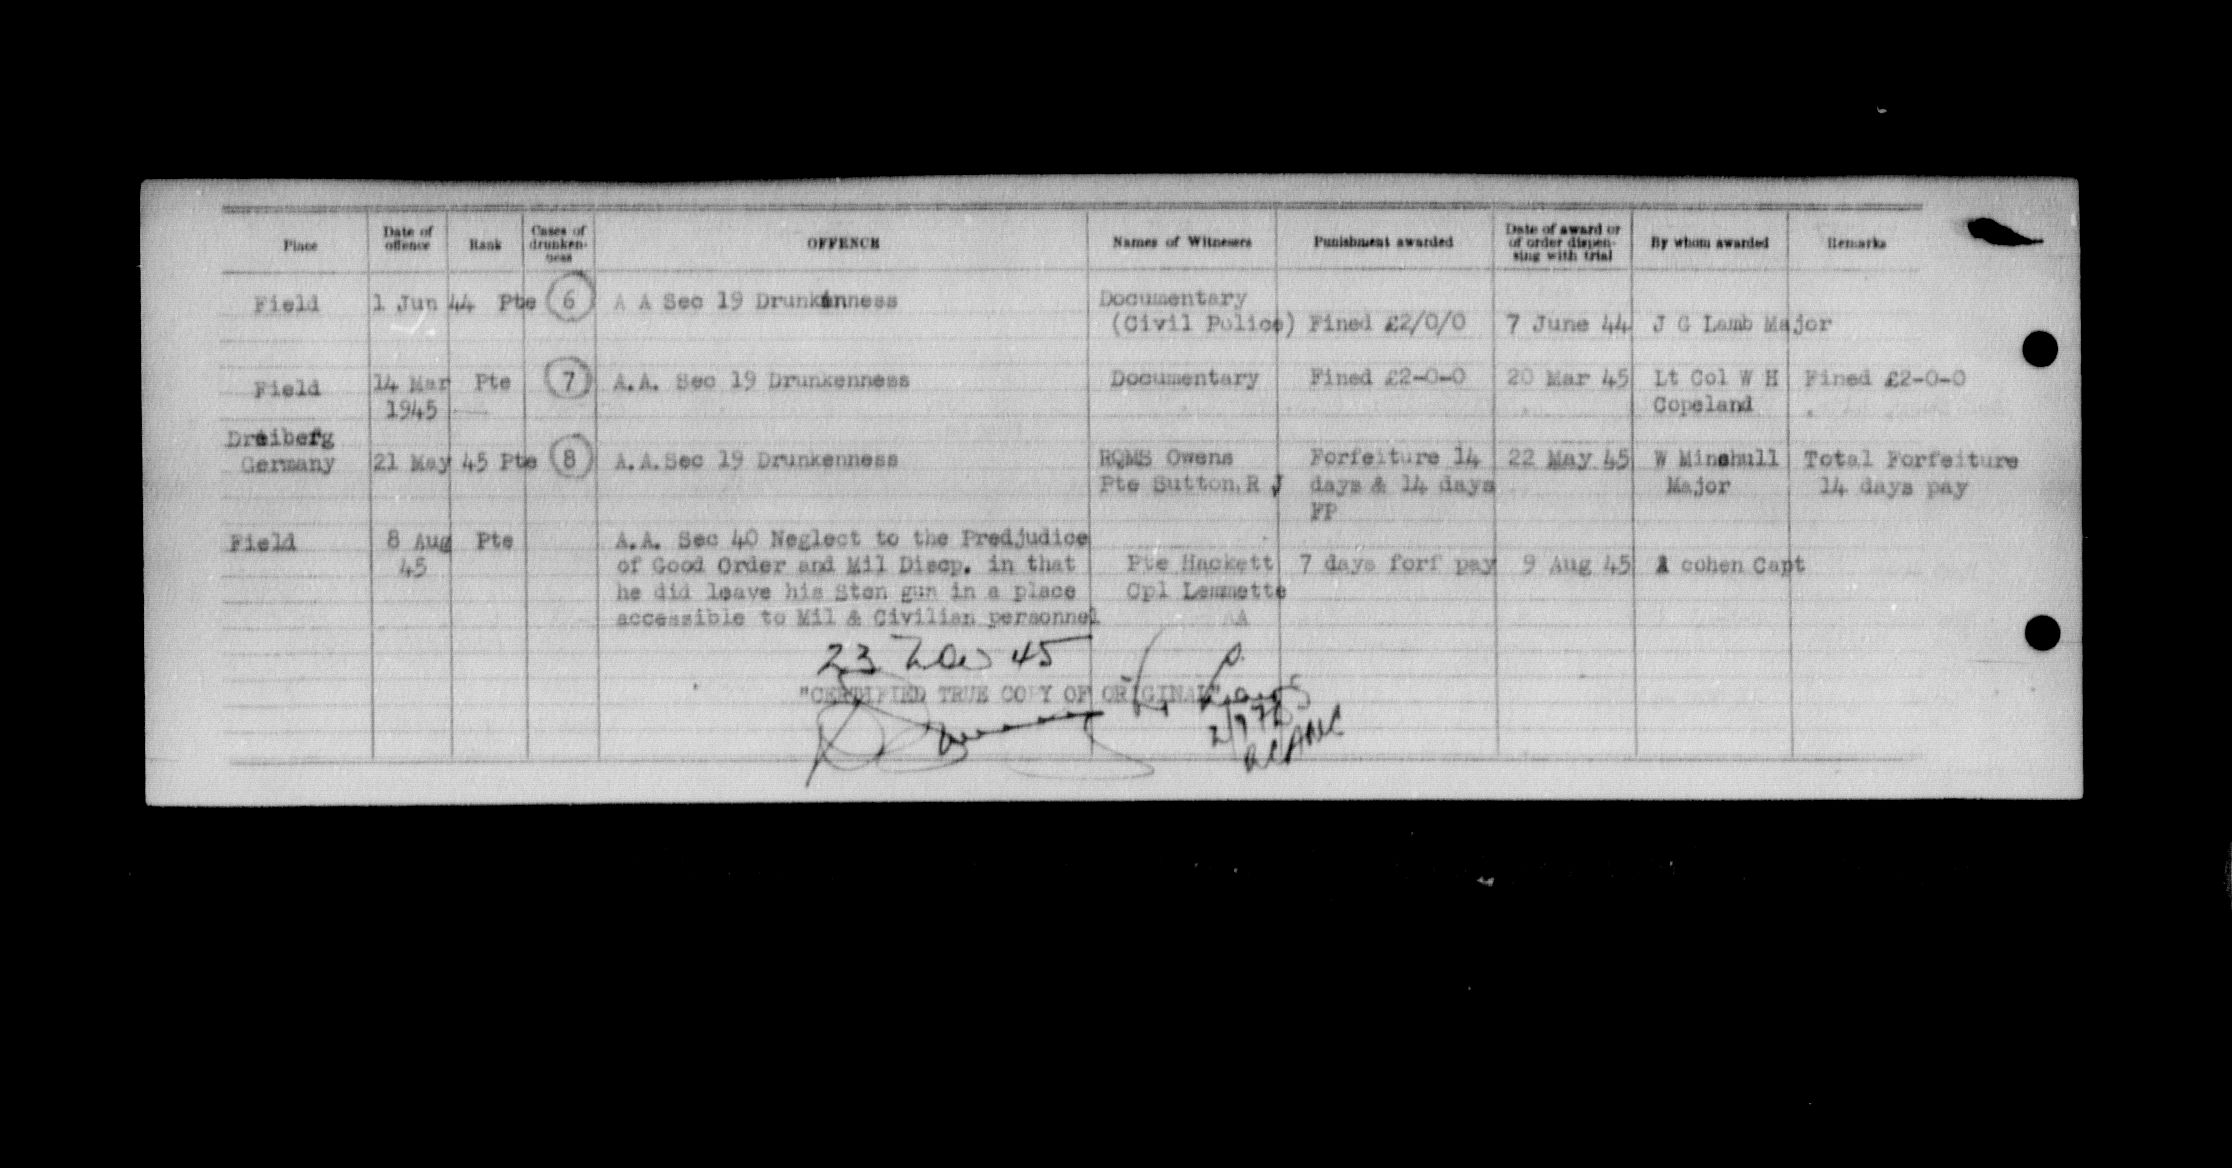 Place Date of offence Rank Cases of drunken-ness OFFENCE Names of Witnesses Punishment awarded Date of award or of order dispen-sing with trial By whom awarded Remarks
Field 1 Jun 44 Pte 6 A A Sec 19 Drunkenness Documentary
(Civil Police) Fined £2/0/0 7 June 44 J G Lamb Major
Field 14 Mar Pte 7 A.A. Sec 19 Drunkenness Documentary Fined £2-0-0 20 Mar 45 Lt Col W H Fined £2-0-0
1945 Copeland
Dreiberg
Germany 21 May 45 Pte 8 A.A.Sec 19 Drunkenness RQMS Owens Forfeiture 14 22 May 45 W Minshull Total Forfeiture
Pte Sutton.R J days & 14 days Major 14 days pay
FP
Field 8 Aug Pte A.A. Sec 40 Neglect to the Predjudice
45 of Good Order and Mil Discp. in that Pte Hackett 7 days forf pay 9 Aug 45 A cohen Capt
he did leave his Sten gun in a place Cpl Lemmette
accessible to Mil & Civilian personnel AA
23 Nov 45
"CERTIFIED TRUE COPY OF ORIGINAL"